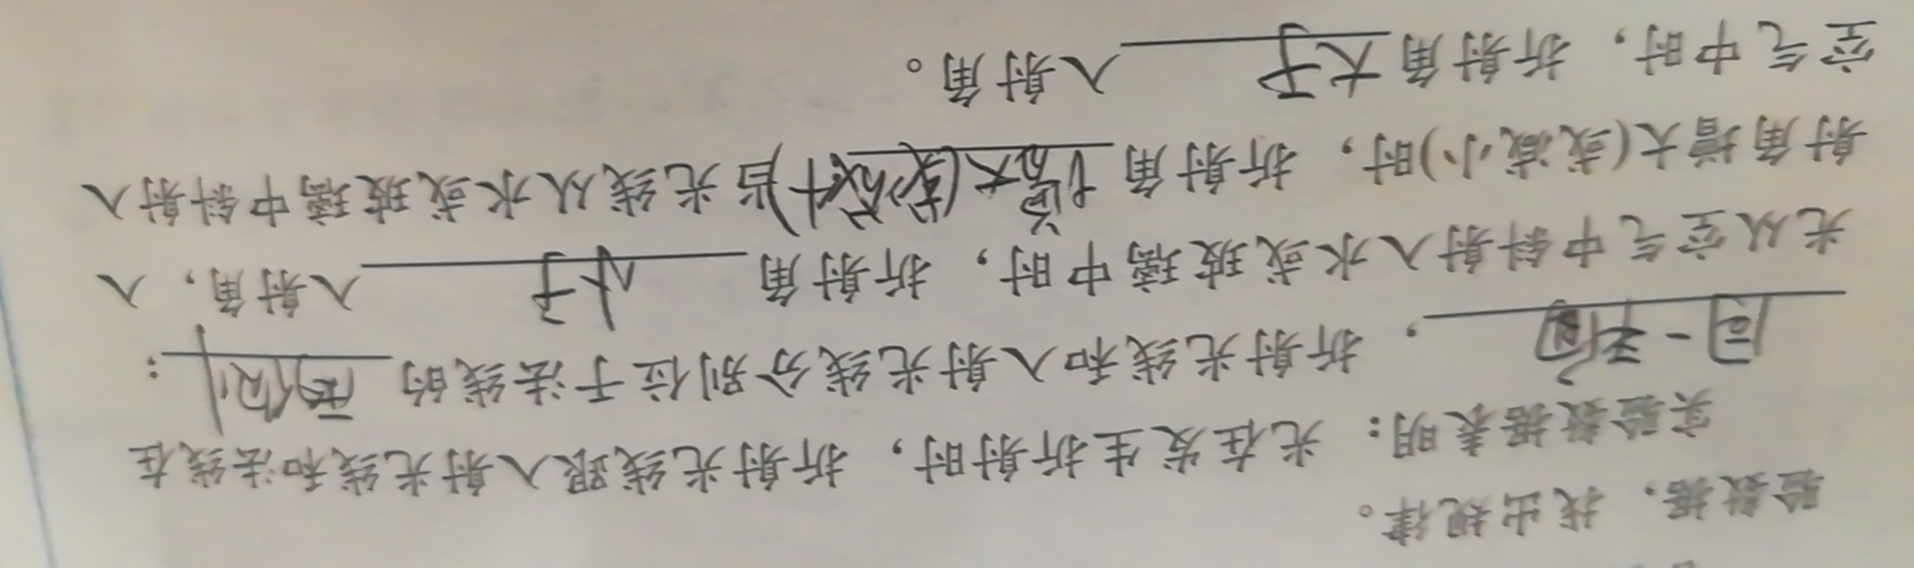 验数据，找出规律。
实验数据表明：光在发生折射时，折射光线跟入射光线和法线在
同一平面，折射光线和入射光线分别位于法线的两侧：
光从空气中斜射入水或玻璃中时，折射角小于入射角，入
射角增大(或减小)时，折射角增大(或减小)当光线从水或玻璃中斜射入
空气中时，折射角大于入射角。